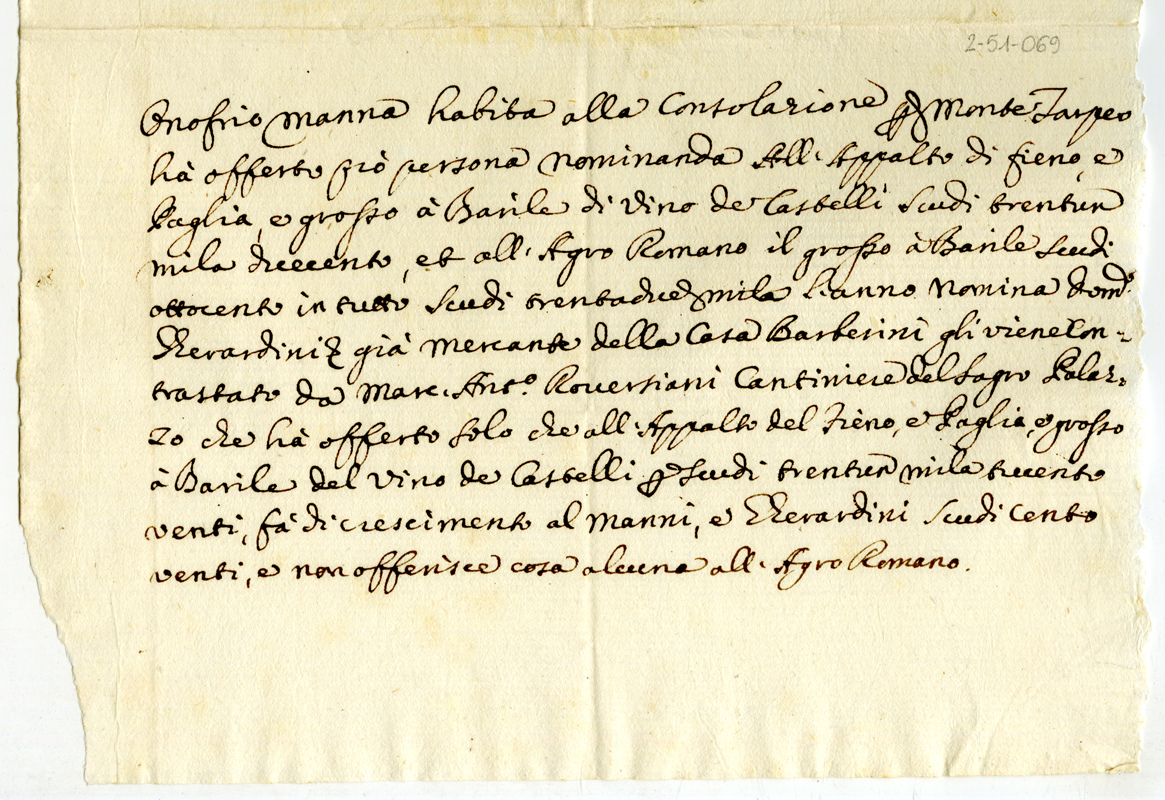 2-51-069
Onofrio Manna habita alla Consolazione Monte Tarpeo
hà offerto prò persona nominanda All'Appalto di fieno, e
Paglia, e grosso à Barile di Vino de Castelli Scudi trentun
mila ducento, et all'Agro Romano il grosso à Barile Scudi
ottocento in tutto Scudi trentadue mila l'anno nomina Dom.º
Gherardini già Mercante della Casa Barberini gli viene Con=
trastato da Marc'Ant.º Roversiani Cantiniere del Sagro Palaz=
zo che hà offerto solo che all'Appalto del Fieno, e Paglia, e grosso
à Barile del Vino de Castelli Scudi trentun mila trecento
venti, fà di crescimento al Manni, e Gherardini Scudi cento
venti, e non offerisce cosa alcuna all'Agro Romano.